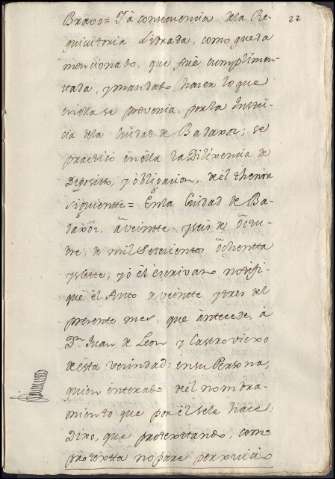 22
Bravo= Ya consequencia dela Re-
quisitoria librada, como queda
mencionado, que fué cumplimen-
tada, y mandado hacer lo que
en ella se prevenia, por la Justi-
cia dela Ciudad de Badaxoz, se
practicó en ella la Dilixencia de
Deposito, y obligacion, del thenor
siguiente= Enla Ciudad de Ba-
daxoz, à veinte y seis de Octu-
bre, de mil Setecientos ochentta
y siete, yo el escrivano notifi-
qué el Auto de veinte y tres del
presente mes, que antecede, à
Dn. Juan de Leon, y Castro viexo
de esta vecindad, en su Persona,
quien enterado del nombra-
miento que por él sele hace
Dixo, que protextando, como
protexta no pare perxuicio